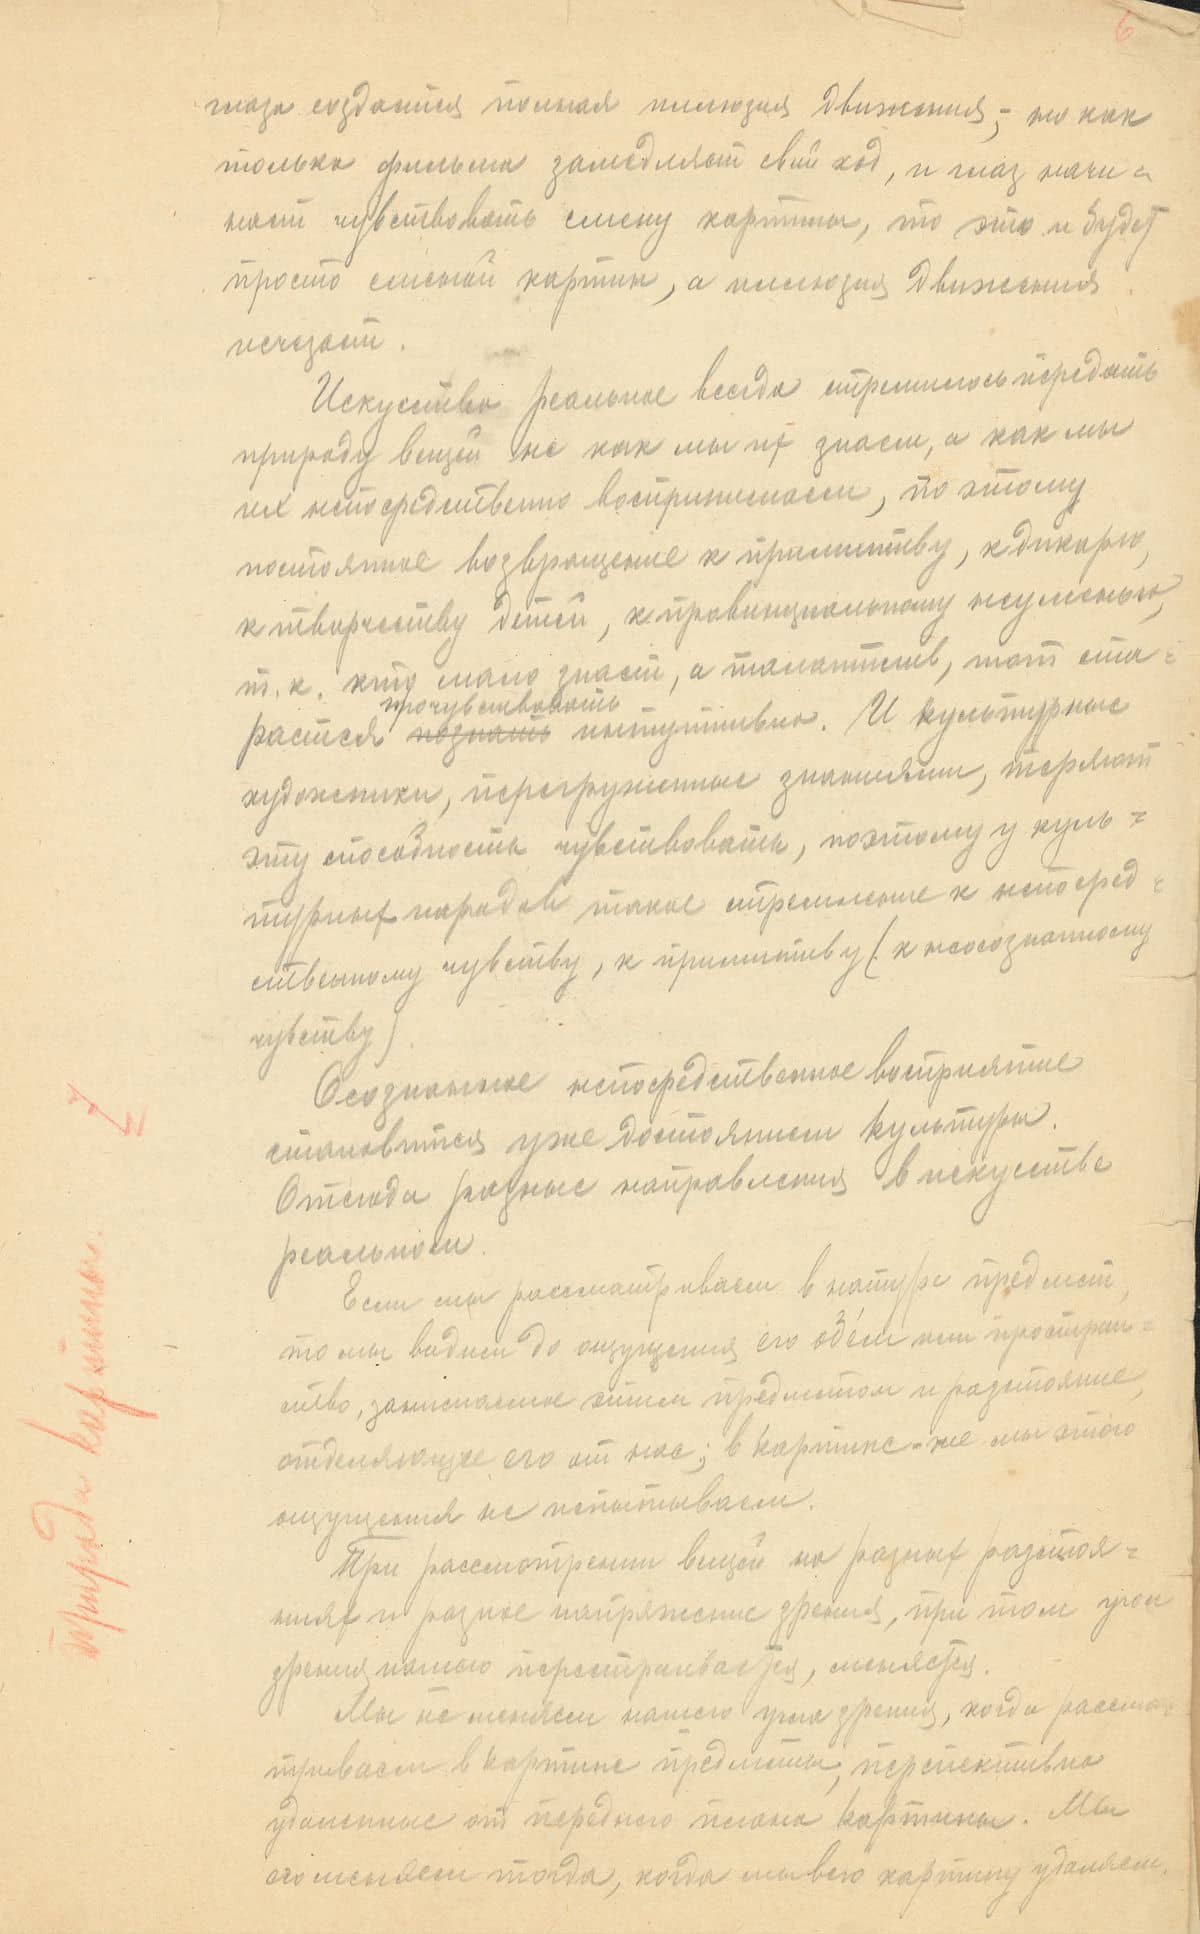 6
глаза создается полная иллюзия движения; но как
только фильма замедляет свой ход, и глаз начи-
нает чувствовать смену картины, то это и будет
просто сменой картин, а иллюзия движения
исчезает.
Искусство реальное всегда стремилось передать
природу вещей не как мы их знаем, а как мы
их непосредственно воспринимаем, по этому
постоянное возвращение к примитиву, к дикарю,
к творчеству детей, к провинциальному неуменью,
т.к. кто мало знает, а талантлив, тот ста=
прочувствовать
рается познать интуитивно. И культурные
художники, перегруженные знаниями, теряют
эту способность чувствовать, поэтому у куль=
турных народов такое стремление к непосред=
ственному чувству, к примитиву (к неосознанному
чувству).
Осознанное непосредственное восприятие
становится уже достоянием культуры.
Отсюда разные направления в искусстве
реальном.
Если мы рассматриваем в натуре предмет,
то мы видим до ощущения его объём или простран=
ство, занимаемое этим предметом и разстояние,
отделяющее его от нас; в картине-же мы этого
ощущения не испытываем.
При рассмотрении вещей на разных разстоя=
ниях и разное напряжение зрения, при том угол
зрения нашего перестраивается, меняется.
Мы не меняем нашего угла зрения, когда рассма=
триваем в картине предметы, перспективно
удаленные от переднего плана картины. Мы
его меняем тогда, когда мы всю картину удаляем.
Природа картины.